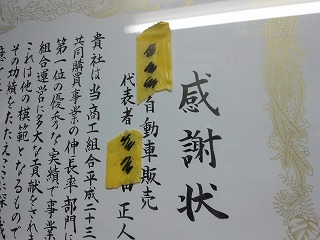 感謝状
自動車販売
代表者 田正人
貴社は当商工組合平成二十三
共同購買事業の伸長率部門に
第一位の優秀な実績で事業
組合運営に多大な貢献をされま
これは他の模範となるもので
その功績をたたえここに